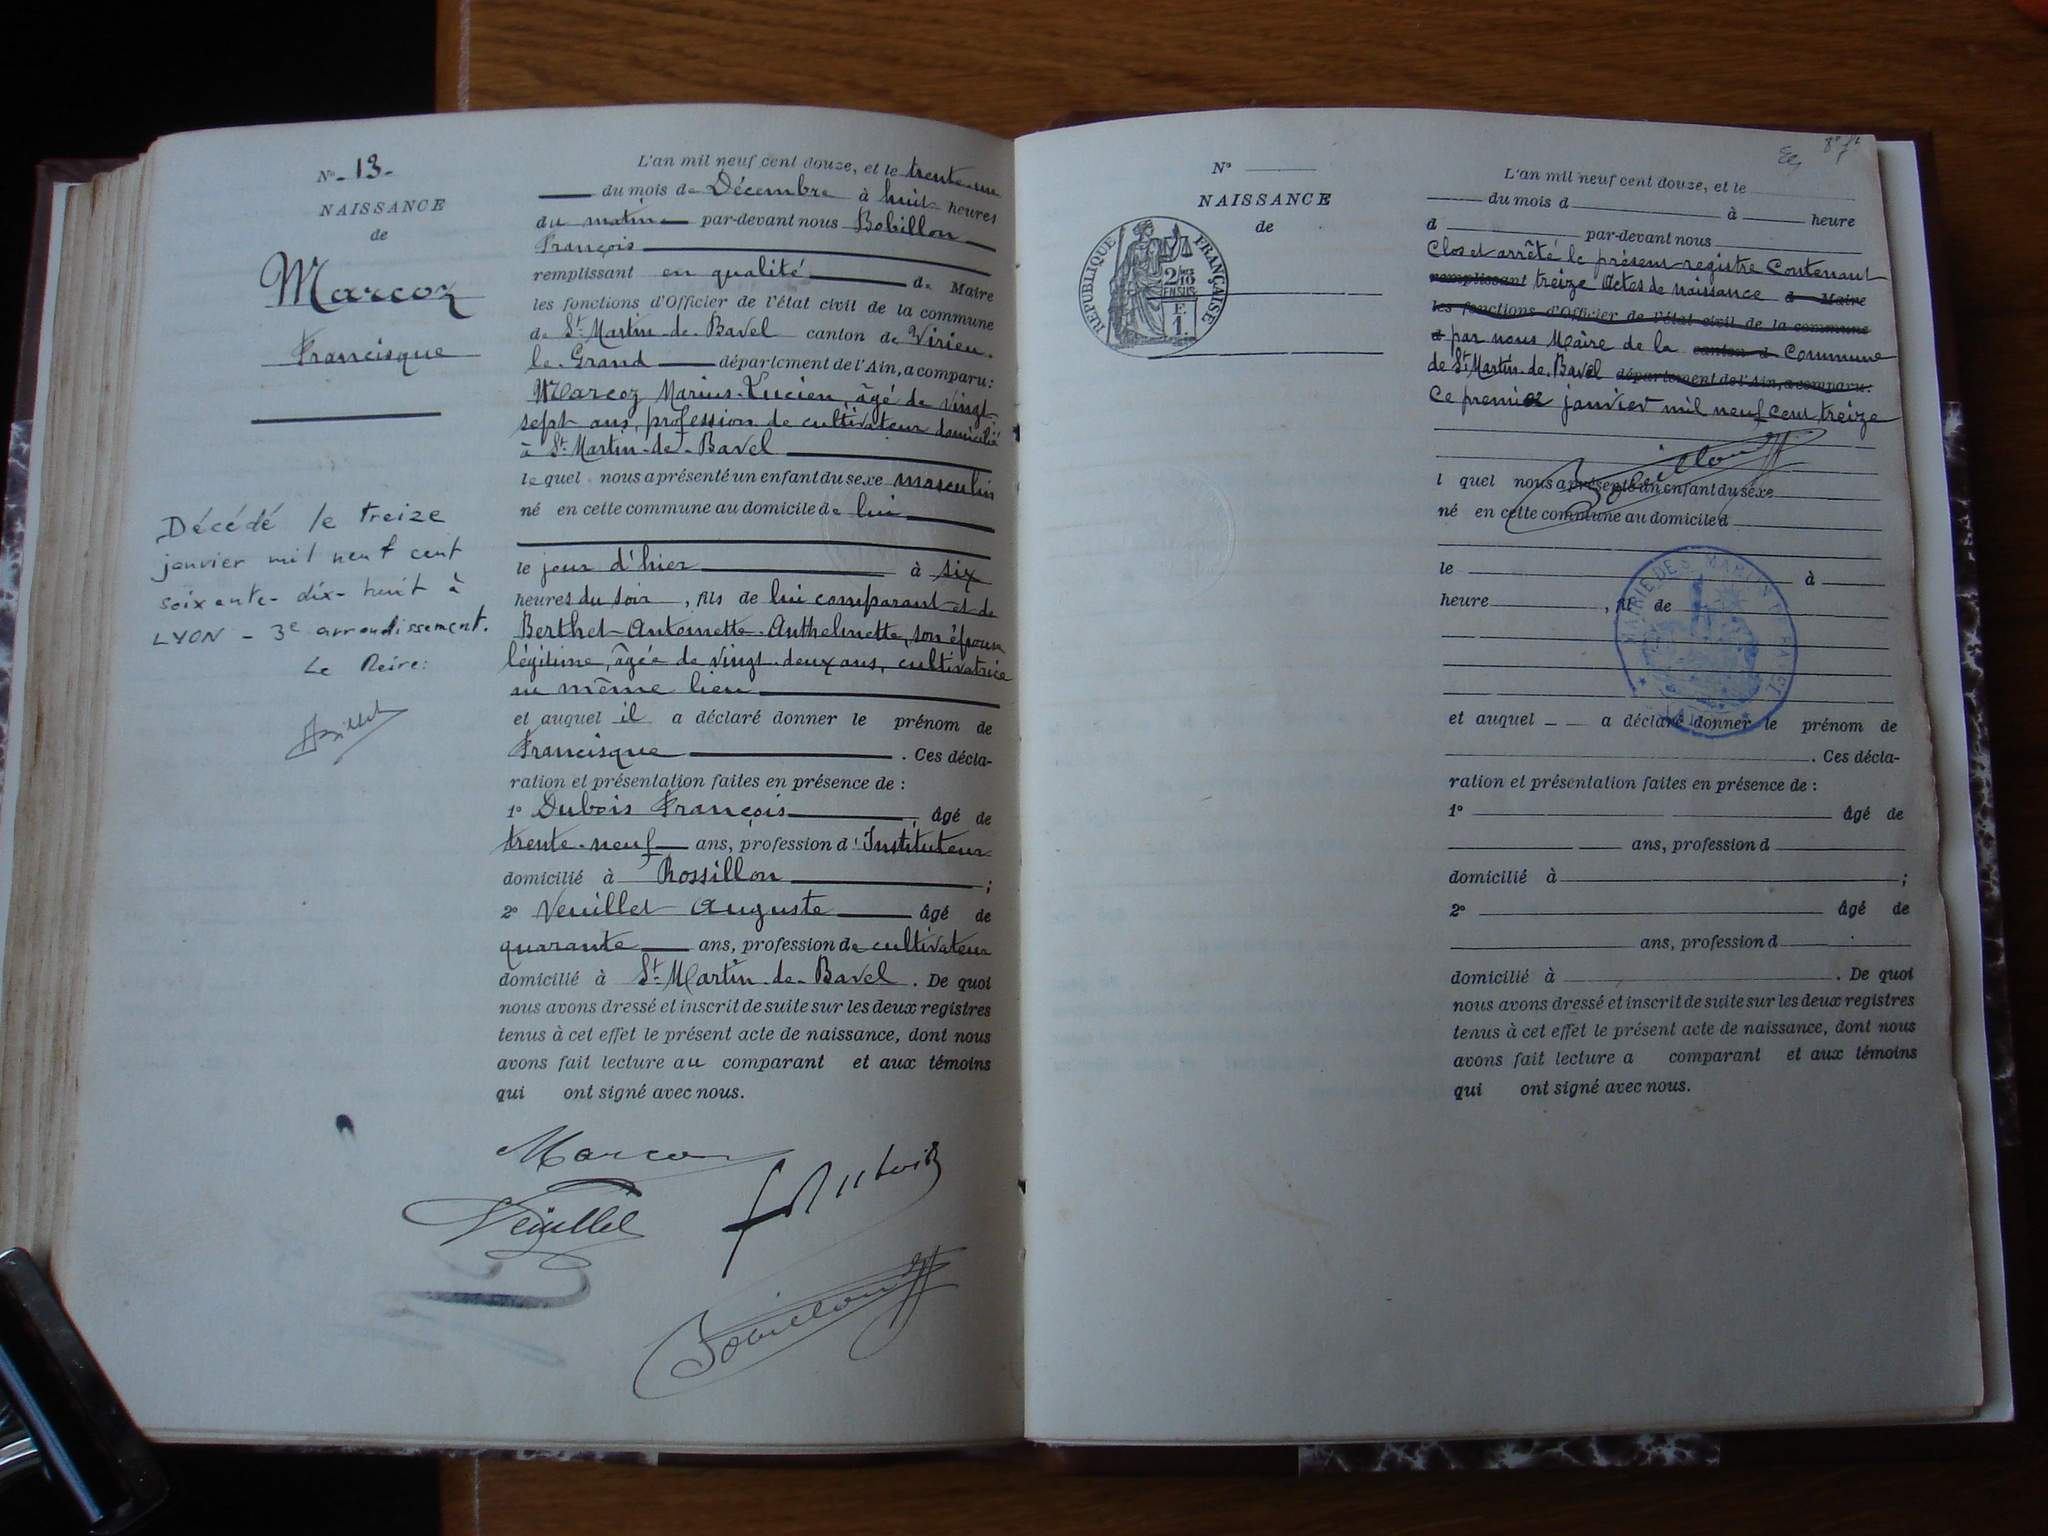 N° - 13 -
NAISSANCE
de
Marcoz
Francisque
Décédé le treize
janvier mil neuf cent
soixante-dix-huit à
LYON - 3e arrondissement.
Le Maire:
L'an mil neuf cent douze, et le trente-un
du mois de Décembre à huit heures
du matin par-devant nous Bobillon
François
remplissant en qualité de Maire
les fonctions d'Officier de l'état civil de la commune
de St Martin-de-Bavel canton de Virieu-
le-Grand département de l'Ain, a comparu:
Marcoz Marius-Lucien, âgé de vingt-
sept ans, profession de cultivateur domicilié
à St Martin-de-Bavel
lequel nous a présenté un enfant du sexe masculin
né en cette commune au domicile de lui
le jour d'hier à six
heures du soir, fils de lui comparant et de
Berthet Antoinette Anthelmette, son épouse
légitime, âgée de vingt-deux ans, cultivatrice
au même lieu
et auquel il a déclaré donner le prénom de
Francisque . Ces décla-
ration et présentation faites en présence de :
1° Dubois François, âgé de
trente-neuf ans, profession d'Instituteur
domicilié à Rossillon ;
2° Veuillet Auguste âgé de
quarante ans, profession de cultivateur
domicilié à St Martin-de-Bavel. De quoi
nous avons dressé et inscrit de suite sur les deux registres
tenus à cet effet le présent acte de naissance, dont nous
avons fait lecture au comparant et aux témoins
qui ont signé avec nous.
Marcoz
Veuillet
F Dubois
Bobillon
N°
NAISSANCE
de
RÉPUBLIQUE FRANÇAISE
2/10
EN SUS
E
1.
L'an mil neuf cent douze, et le
du mois d à heure
d par-devant nous
Clos et arrêté le présent registre Contenant
remplissant treize Actes de naissance d Maire
les fonctions d'Officier de l'état civil de la commune
d par nous Maire de la canton d Commune
de St Martin-de-Bavel département de l'Ain, a comparu:
Ce premier janvier mil neuf cent treize
Bobillon
l quel nous a présenté un enfant du sexe
né en cette commune au domicile d
le à
heure , fil de
et auquel a déclaré donner le prénom de
. Ces décla-
ration et présentation faites en présence de :
1° âgé de
ans, profession d
domicilié à ;
2° âgé de
ans, profession d
domicilié à . De quoi
nous avons dressé et inscrit de suite sur les deux registres
tenus à cet effet le présent acte de naissance, dont nous
avons fait lecture a comparant et aux témoins
qui ont signé avec nous.